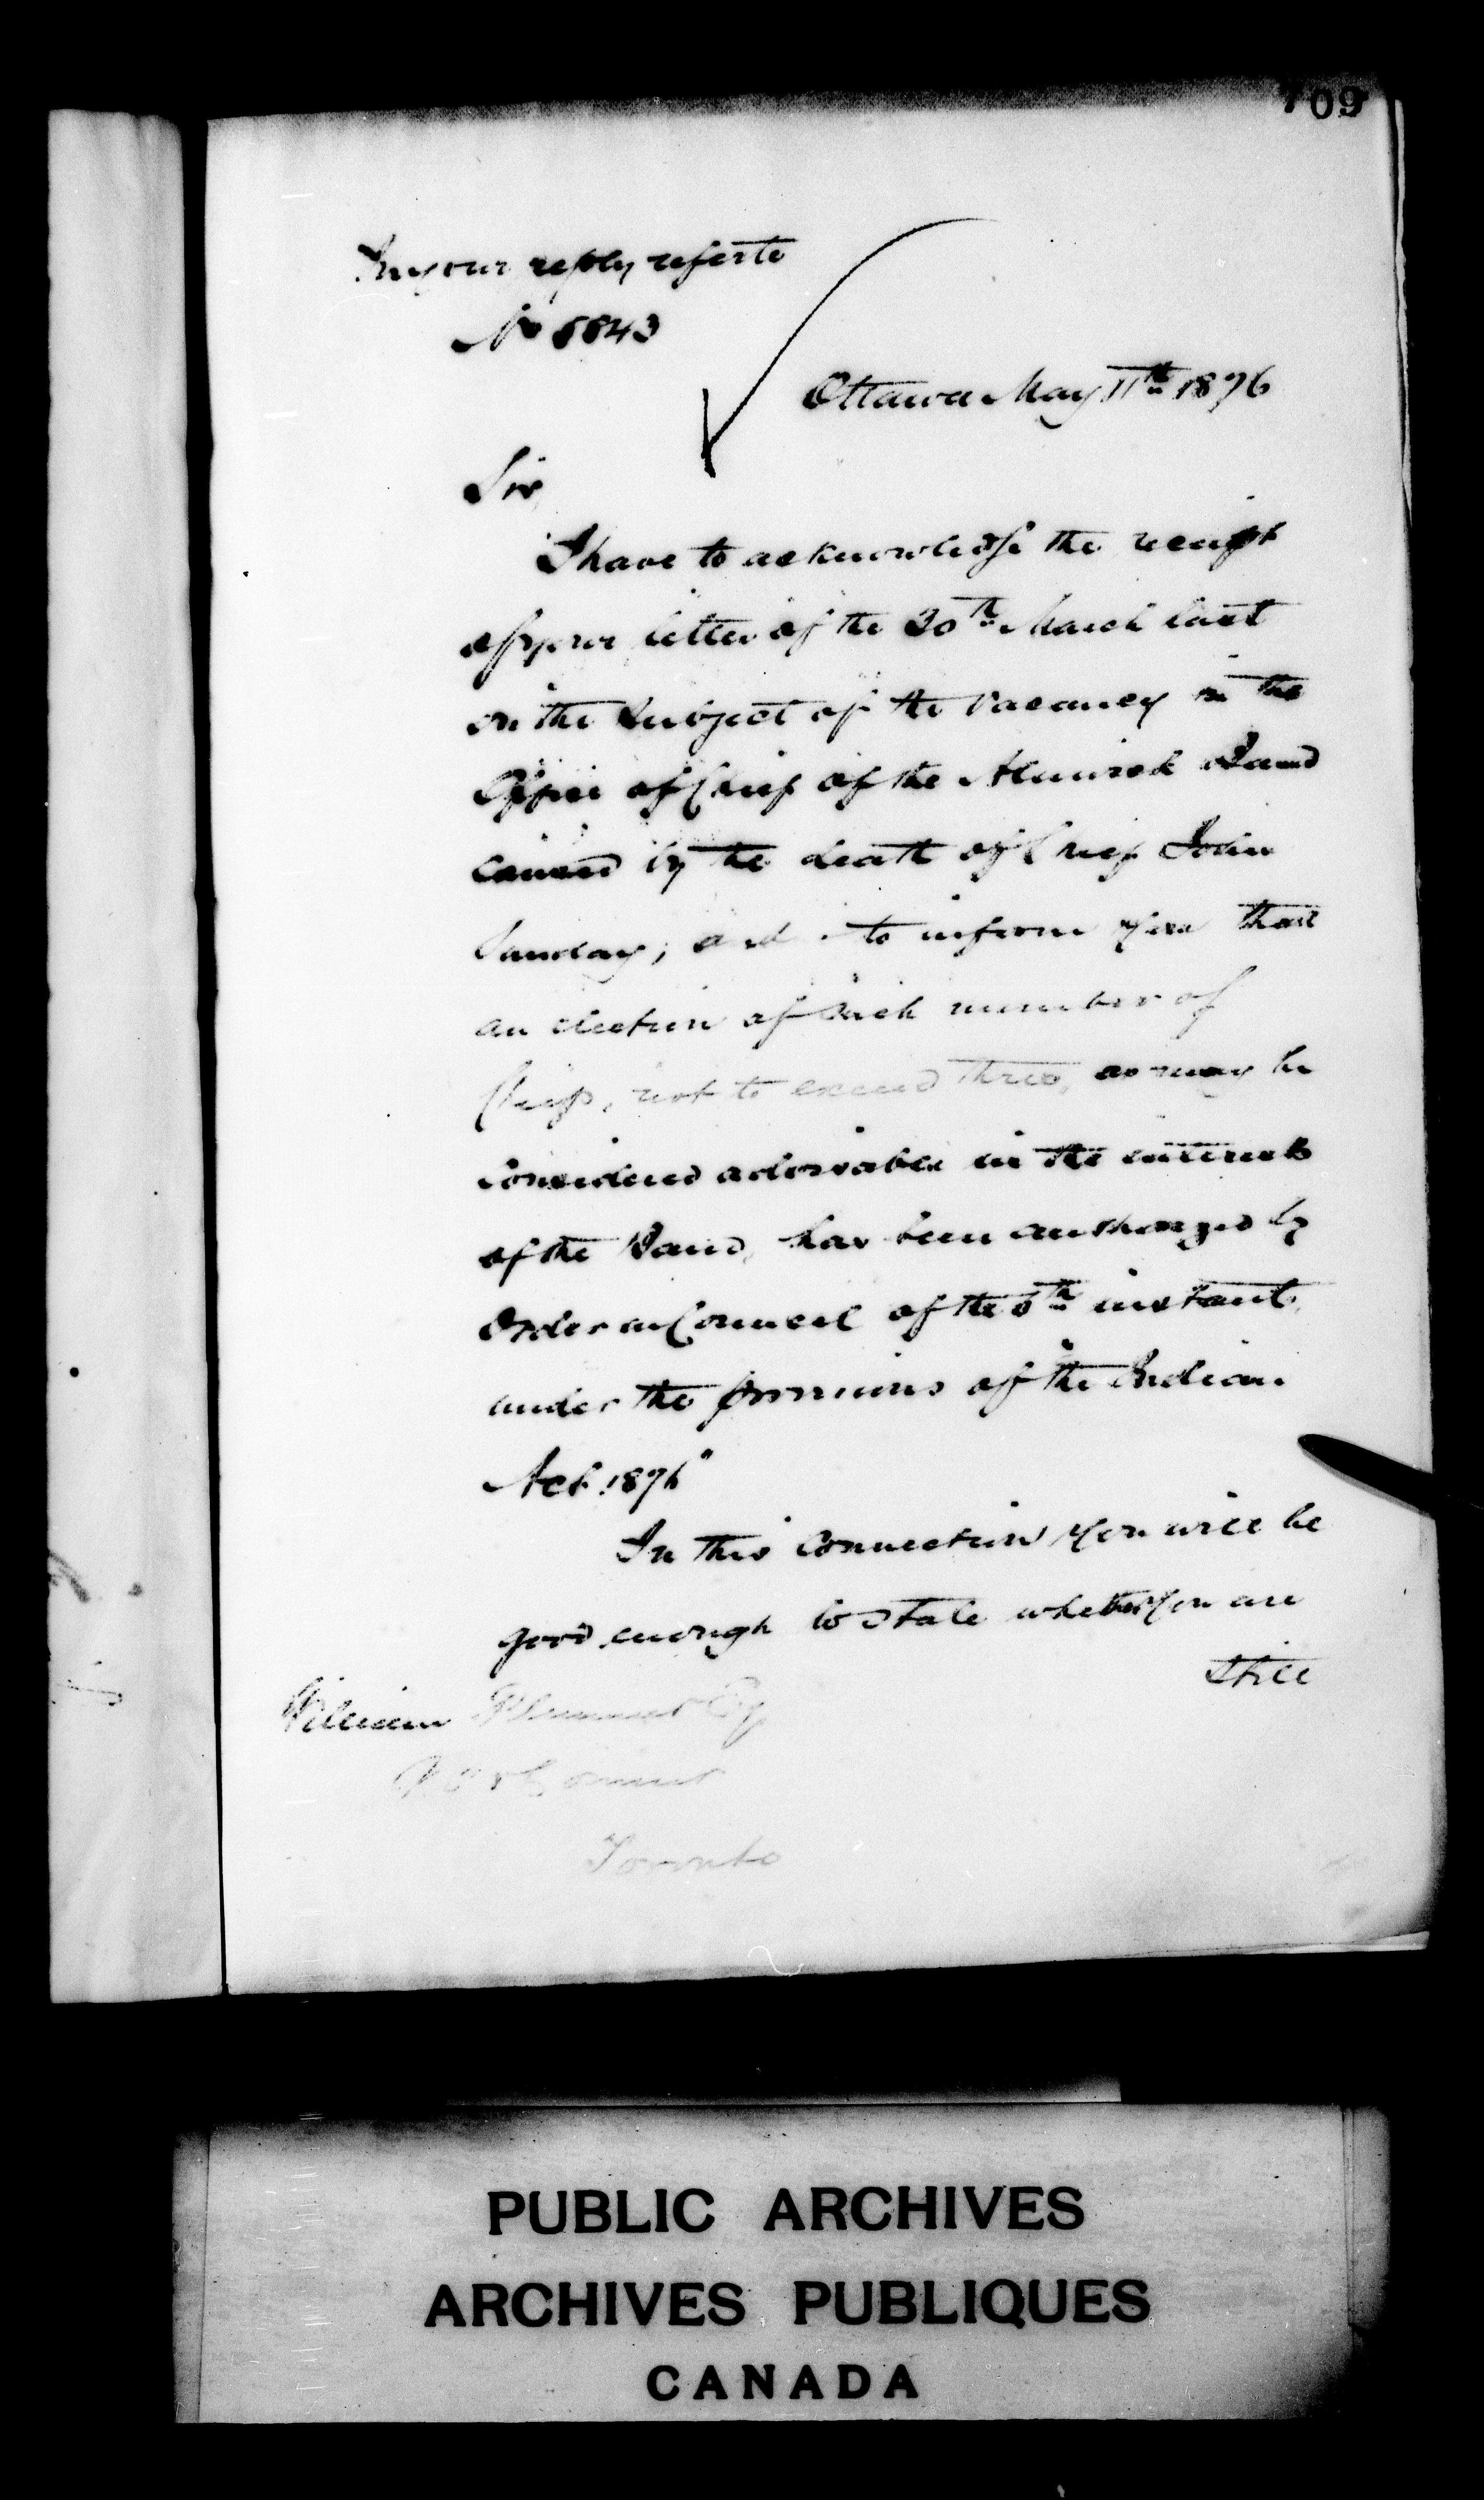 709
In your reply refer to
No 5843
Ottawa May 11th 1876
Sir,
I have to acknowledge the receipt
of your letter of the 30th March last
on the subject of the vacancy in the
Office of Chief of the Alnwick Band
caused by the death of Chief John
Sunday; and to inform you that
an election of such number of
Chiefs, not to exceed three, as may be
considered advisable in the interests
of the Band, has been authorized by
Order in Council of the 8th instant,
under the provisions of the "Indian
Act. 1876"
In this connection you will be
good enough to state whether you are
still
William Plummer Esq
Toronto
PUBLIC ARCHIVES
ARCHIVES PUBLIQUES
CANADA